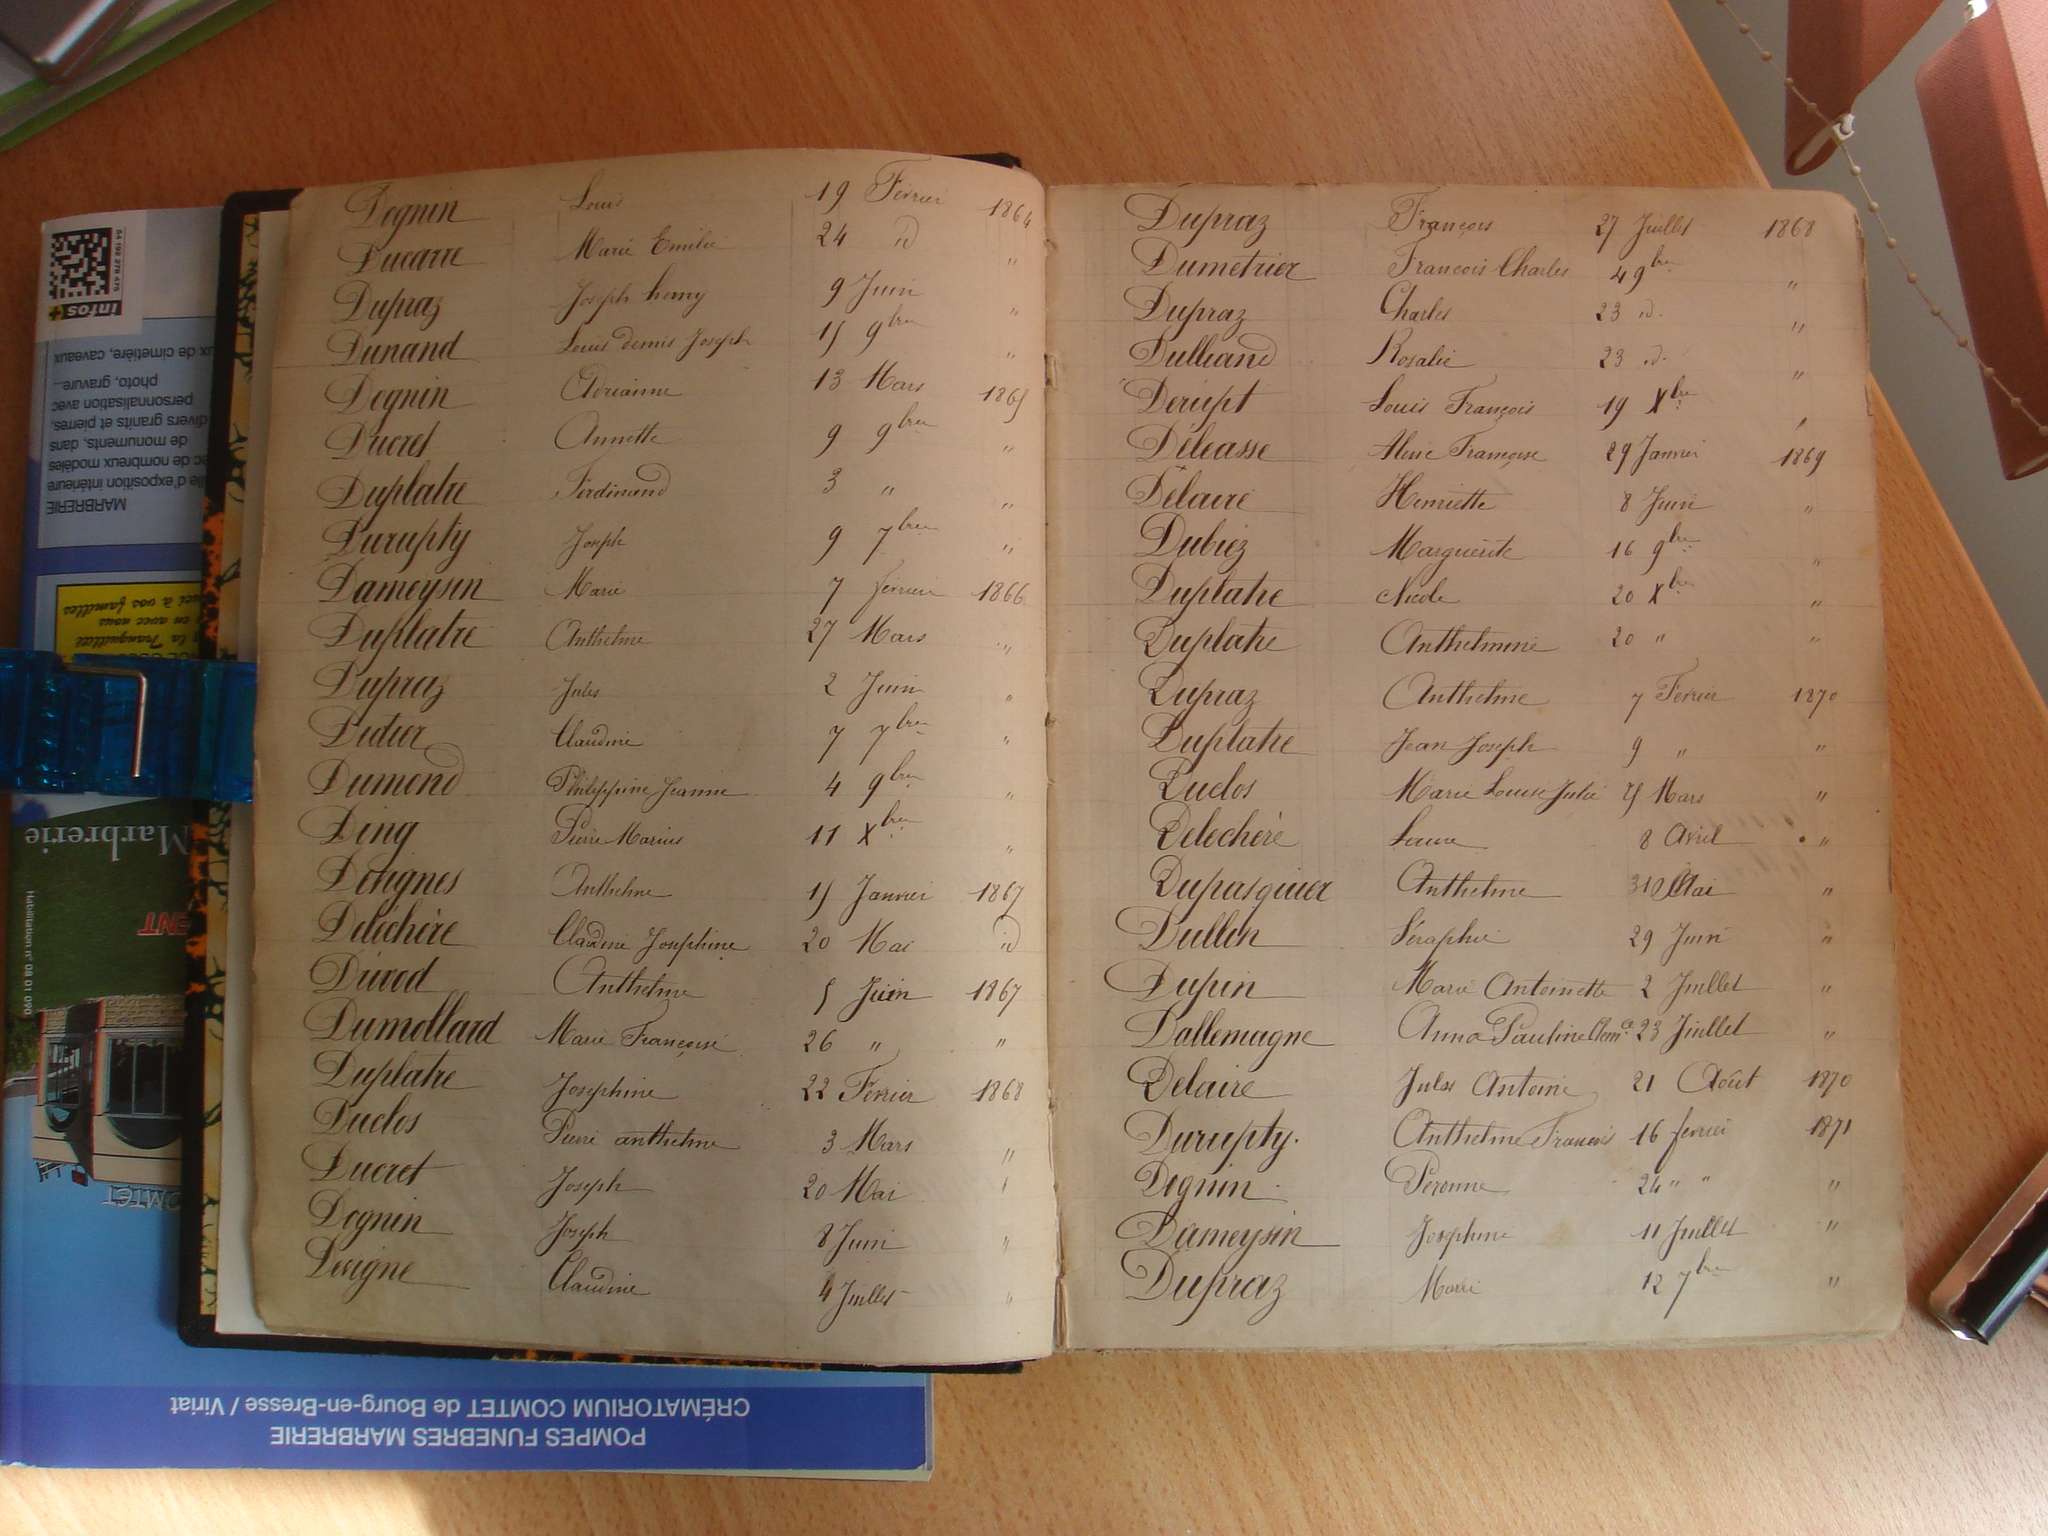 Dognin Louis 19 Fevrier 1864
Ducarre Marie Emilie 24 id "
Dupraz Joseph henry 9 Juin "
Dunand Louis denis Joseph 15 9bre "
Dognin Adrianne 13 Mars 1865
Ducret Annette 9 9bre "
Duplatre Ferdinand 3 " "
Durupty Joseph 9 7bre "
Dameysin Marie 7 fevrier 1866
Duplatre Anthelme 27 Mars "
Dupraz Jules 2 Juin "
Didier Claudine 7 7bre "
Dumond Philippine Jeanne 4 9bre "
Ding Pierre Marius 11 Xbre "
Anthelme 15 Janvier 1867
Deléchère Claudine Josephine 20 Mai id
Anthelme 5 Juin 1867
Dumollard Marie Françoise 26 " "
Duplatre Josephine 22 Fevrier 1868
Duclos Pierre anthelme 3 Mars "
Ducret Joseph 20 Mai "
Dognin Joseph 8 Juin "
Claudine 4 Juillet "
Dupraz François 27 Juillet 1868
Dumetrier Francois Charles 4 9bre "
Dupraz Charles 23 id. "
Dulliand Rosalie 23 id. "
Derupt Louis François 19 Xbre "
Déléasse Françoise 29 Janvier 1869
Délaire Henriette 8 Juin "
Dubiez Marguerite 16 9bre "
Duplatre Nicole 20 Xbre "
Duplatre Anthelmine 20 " "
Dupraz Anthelme 7 Fevrier 1870
Duplatre Jean Joseph 9 " "
Duclos Marie Louise Julie 25 Mars "
Delechère Laure 8 Avril "
Dupasquier Anthelme 31 Mai "
Dullin Séraphie 29 Juin "
Dupin Marie Antoinette 2 Juillet "
Dallemagne Anna Pauline Clemce 23 Juillet "
Delaire Jules Antoine 21 Août 1870
Durupty. Anthelme Francois 16 fevrier 1871
Dognin Peronne 24 " " "
Dameysin Josephine 11 Juillet "
Dupraz Marie 12 7bre "
infos+
ux de cimetière, caveaux
photo, gravure...
personnalisation avec
divers granits et pierres,
de monuments, dans
ec de nombreux modèles
lle d'exposition intérieure
MARBRERIE
la Tranquillité
en avec nous
ci à vos familles
Marbrerie
Habilitation n° 08 01 090
ENT
OMTET
CRÉMATORIUM COMTET de Bourg-en-Bresse / Viriat
POMPES FUNEBRES MARBRERIE